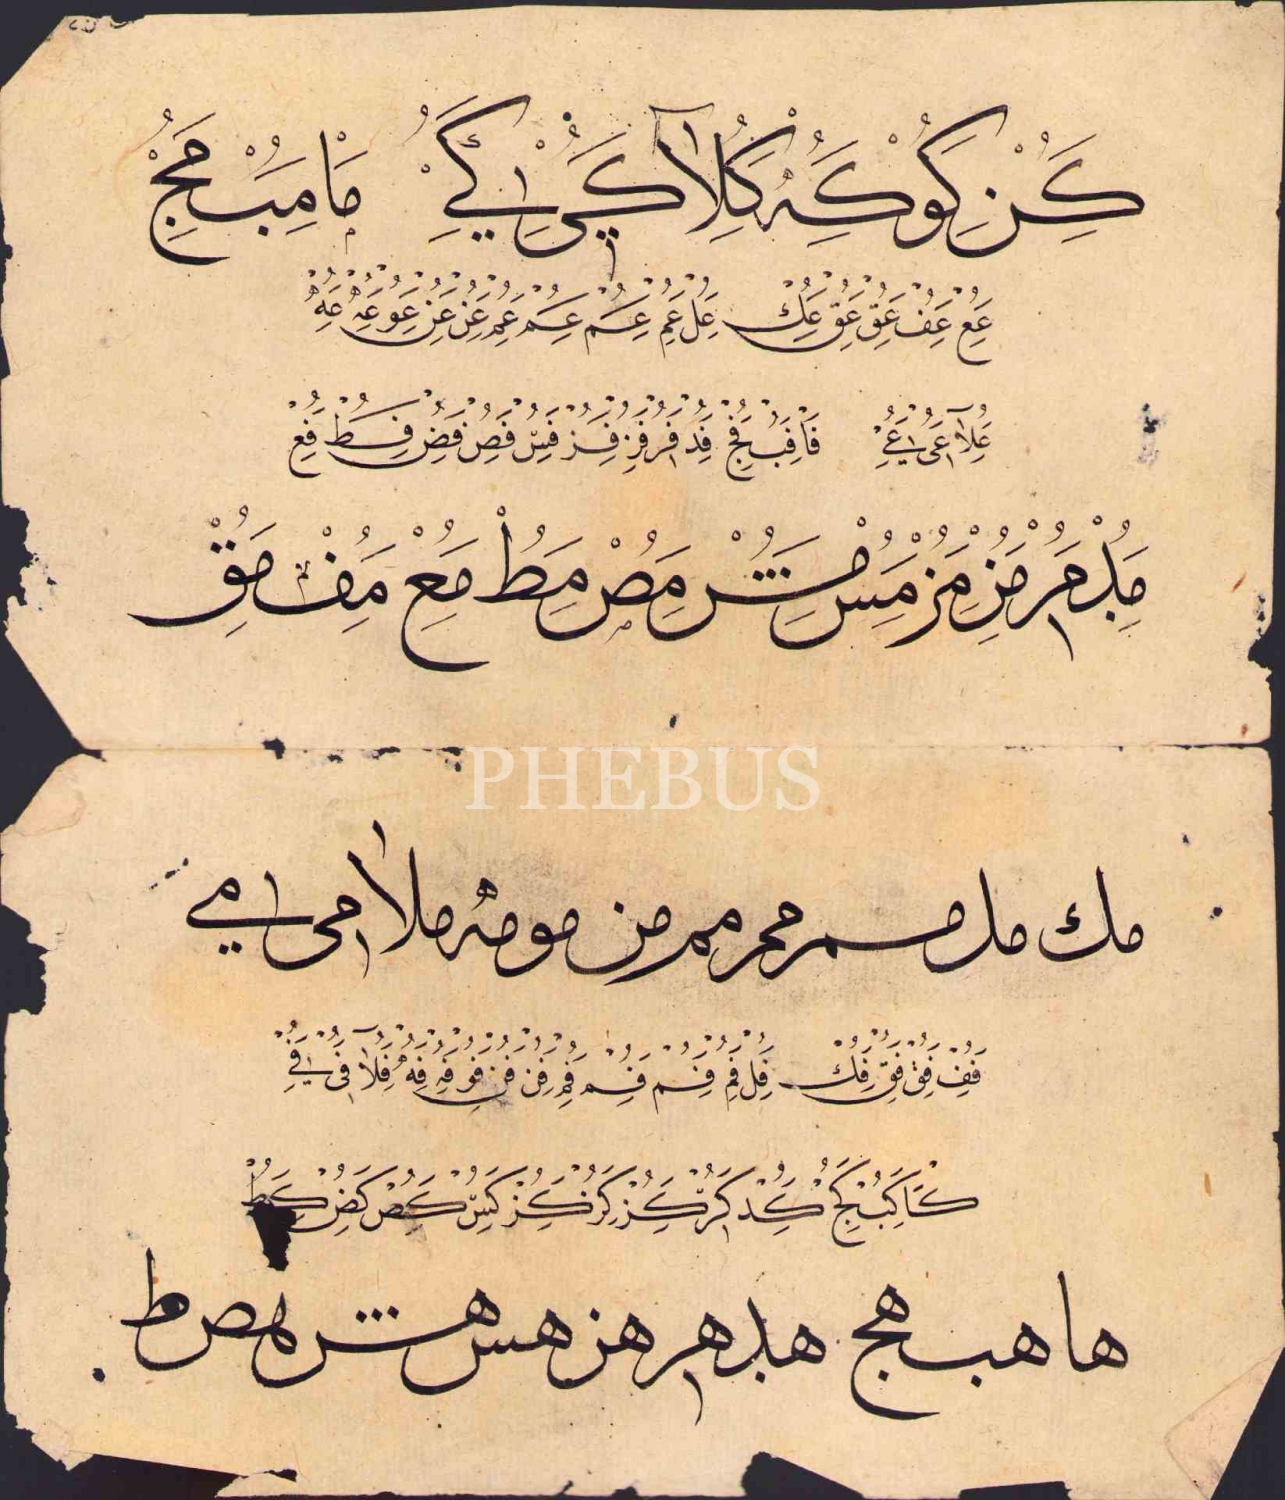 كن كو كه كلا كى كے ما مب مج
عع عف عق عق عك عل عم عم عم عم عن عن عو عه عه
علا عى عے فا فب فج فد فر فز فز فس فص فض فط فع
مد مر مز مز مس مش مص مط مع مف مق
PHEBUS
مك مل مم مم مم من مو مه ملا مى مے
فف فق فق فك فل فم فم فم فم فن فن فو فه فه فلا فى فے
كا كب كج كد كر كز كز كز كس كص كض كط
ها هب هج هد هر هز هس هش هص هط